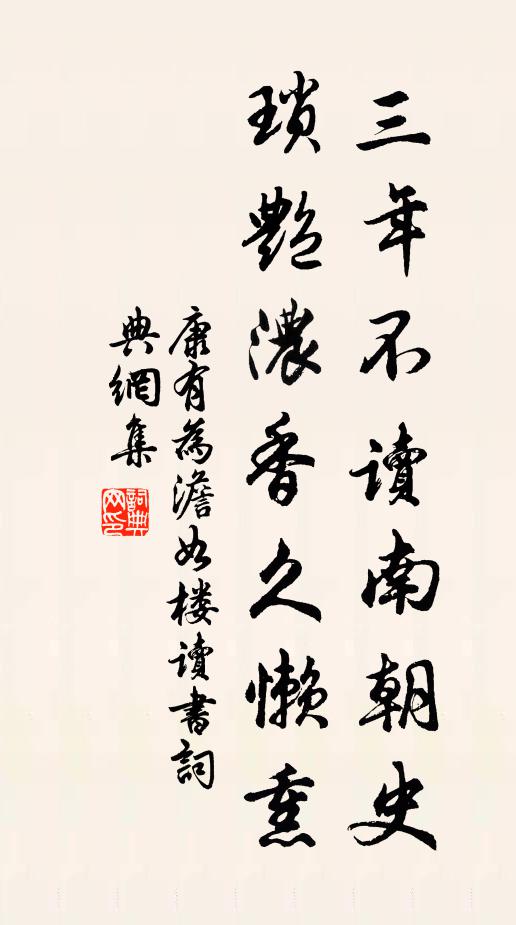 三年不讀南朝史
瑣艷濃香久懶熏
康有為澹如楼讀書詞
典網集
詞典
网印